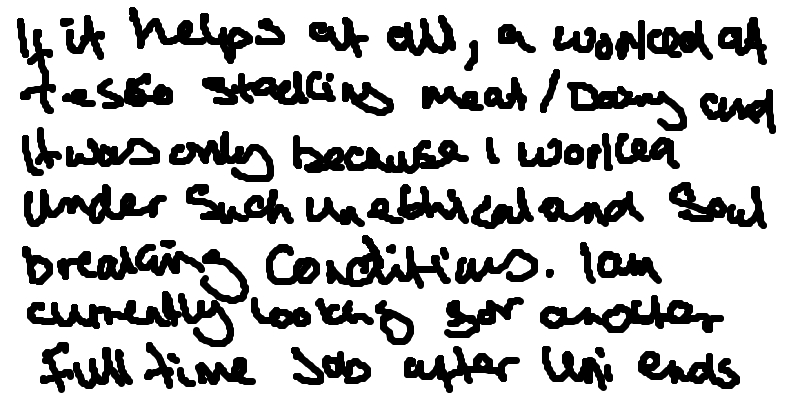 If it helps at all, a worked at
tesco stacking meat/Dairy and
It was only because I worked
under such unethical and soul
breaking conditions. I am
currently looking for another
full time job after uni ends